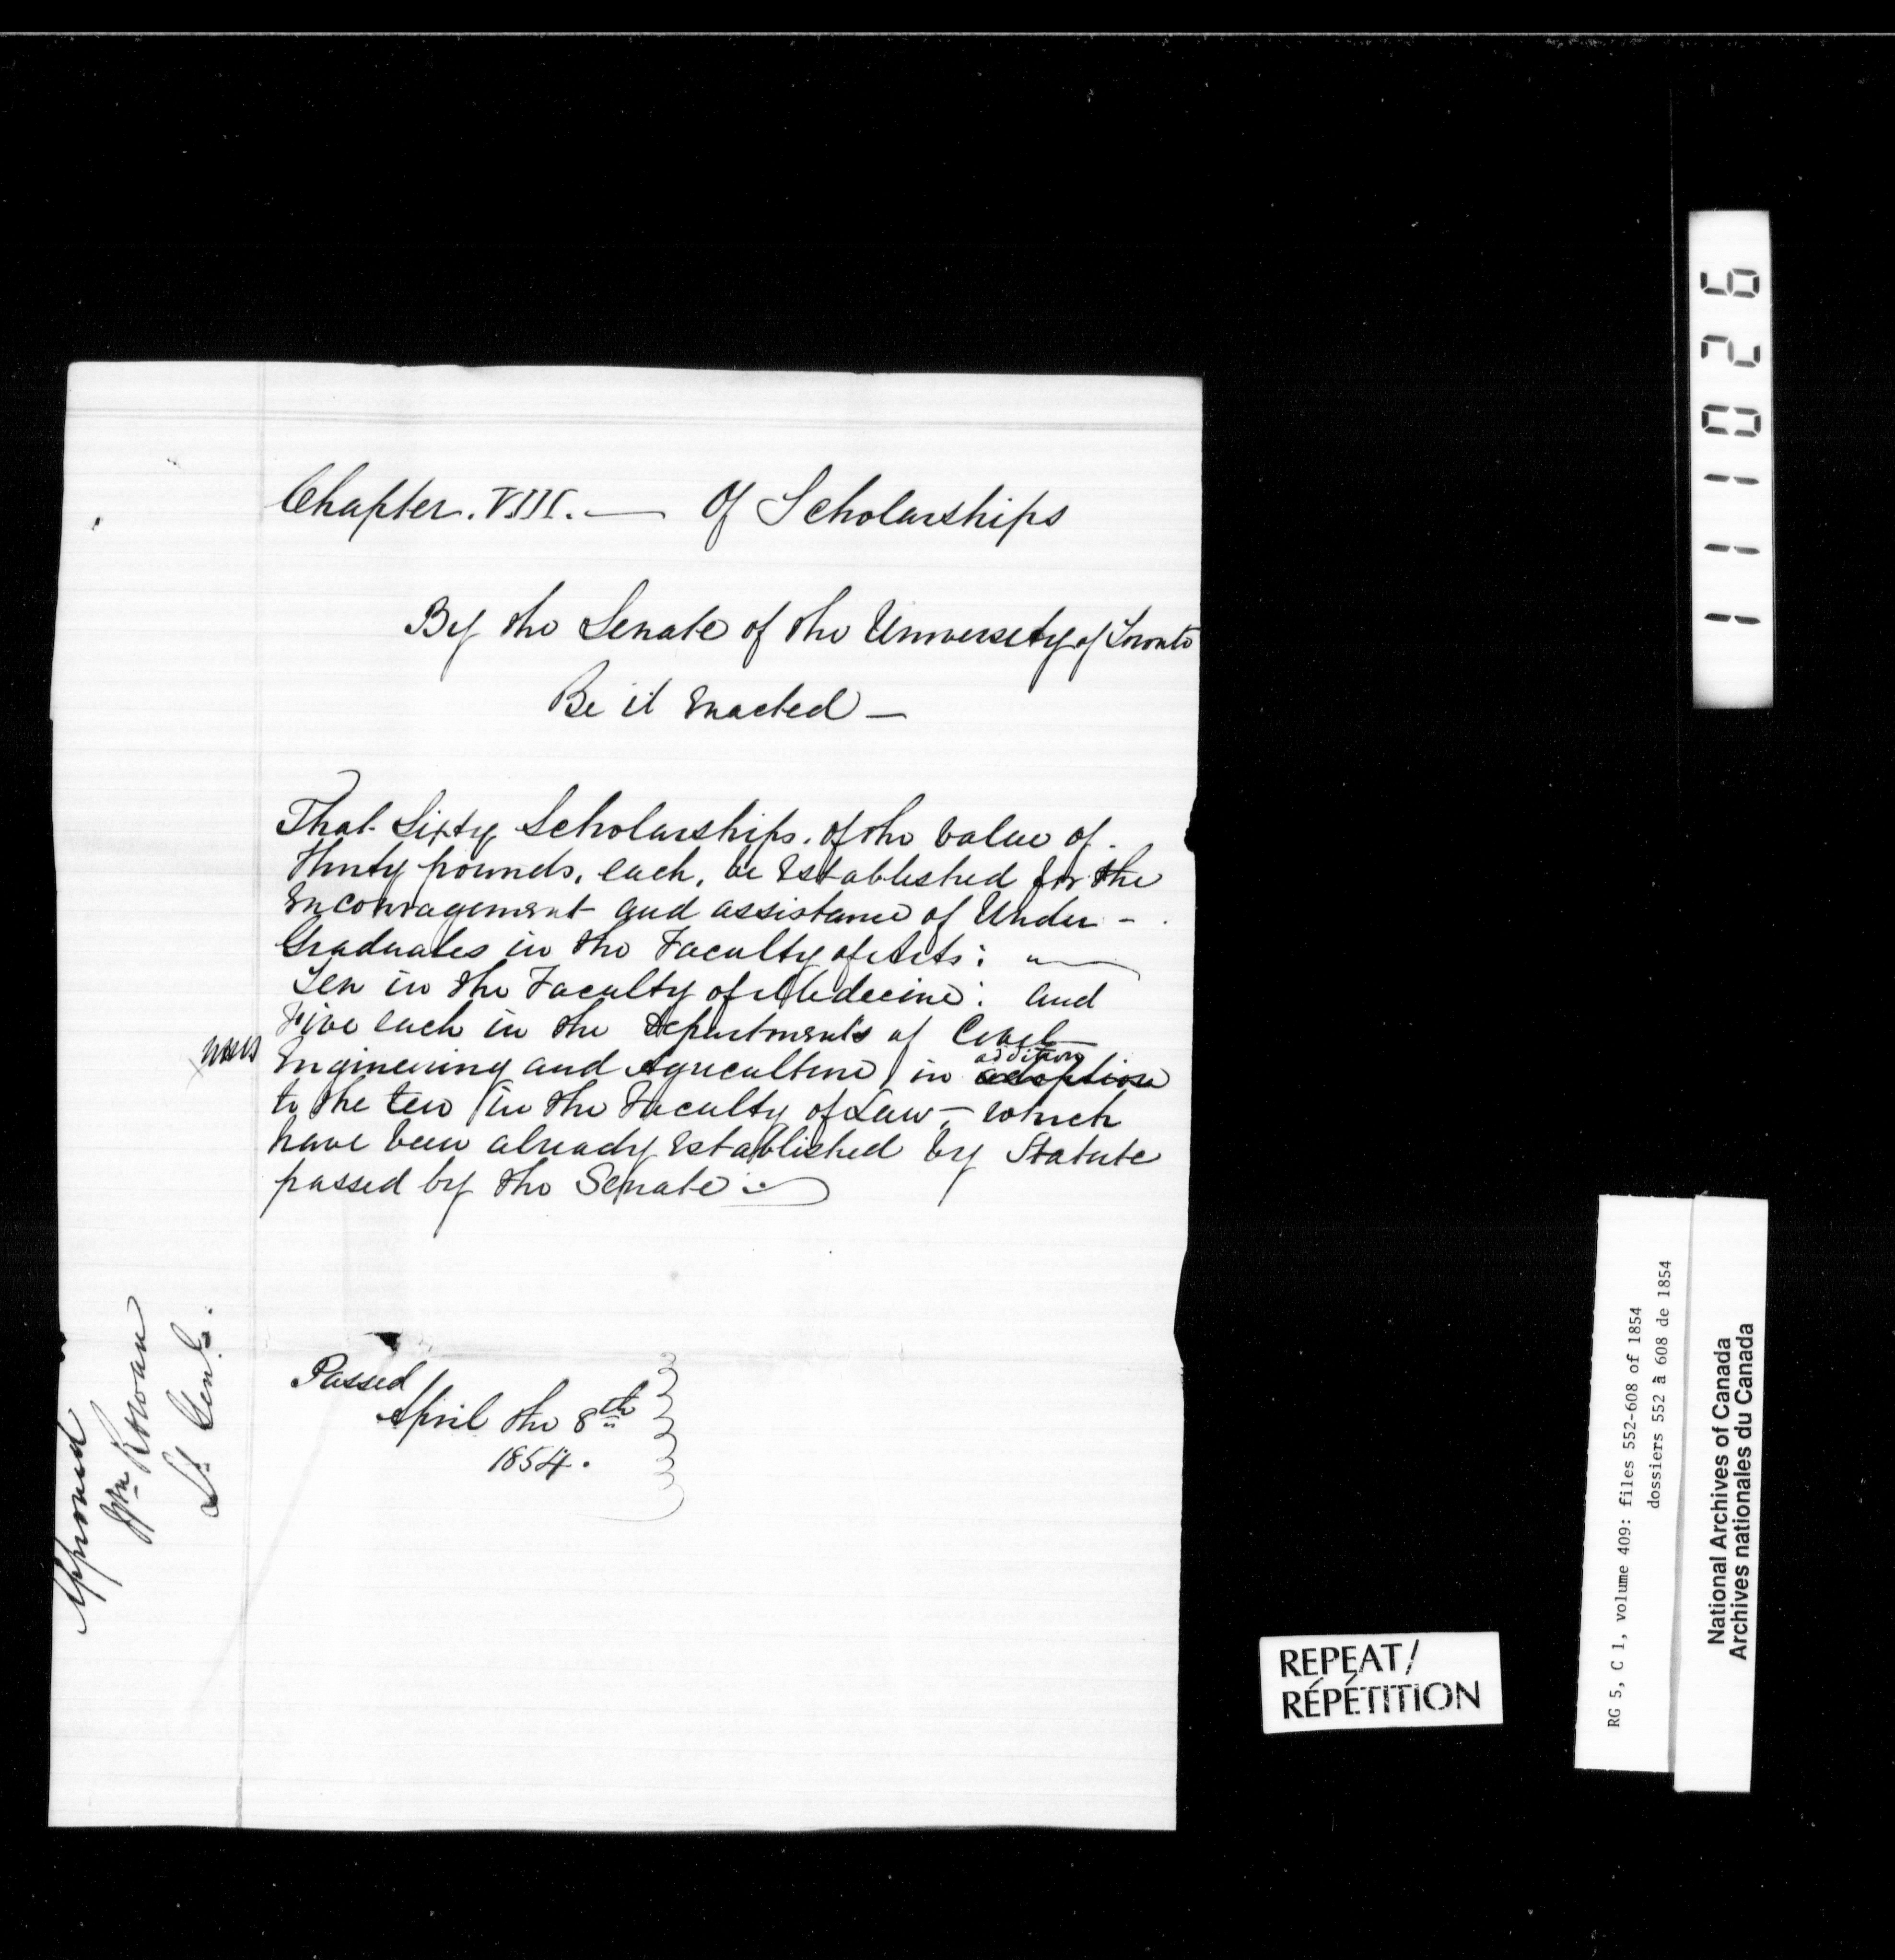 Chapter. VIII. — Of Scholarships
By the Senate of the University of Toronto
Be it Enacted —
That Sixty Scholarships. of the value of
thirty pounds, each, be Established for the
Encouragement and assistance of Under -
Graduates in the Faculty of Arts:
Ten in the Faculty of Medecine: and
Five each in the Departments of Civil
Engineering and Agriculture, in adoption addition
to the ten in the Faculty of Law — which
have been already Established by Statute
passed by the Senate
Passed
April the 8th
1854.
Approved
Wm Rowan
Lt Genl.
111026
REPEAT/
RÉPÉTITION
RG 5, C 1, volume 409: files 552-608 of 1854
dossiers 552 à 608 de 1854
National Archives of Canada
Archives nationales du Canada